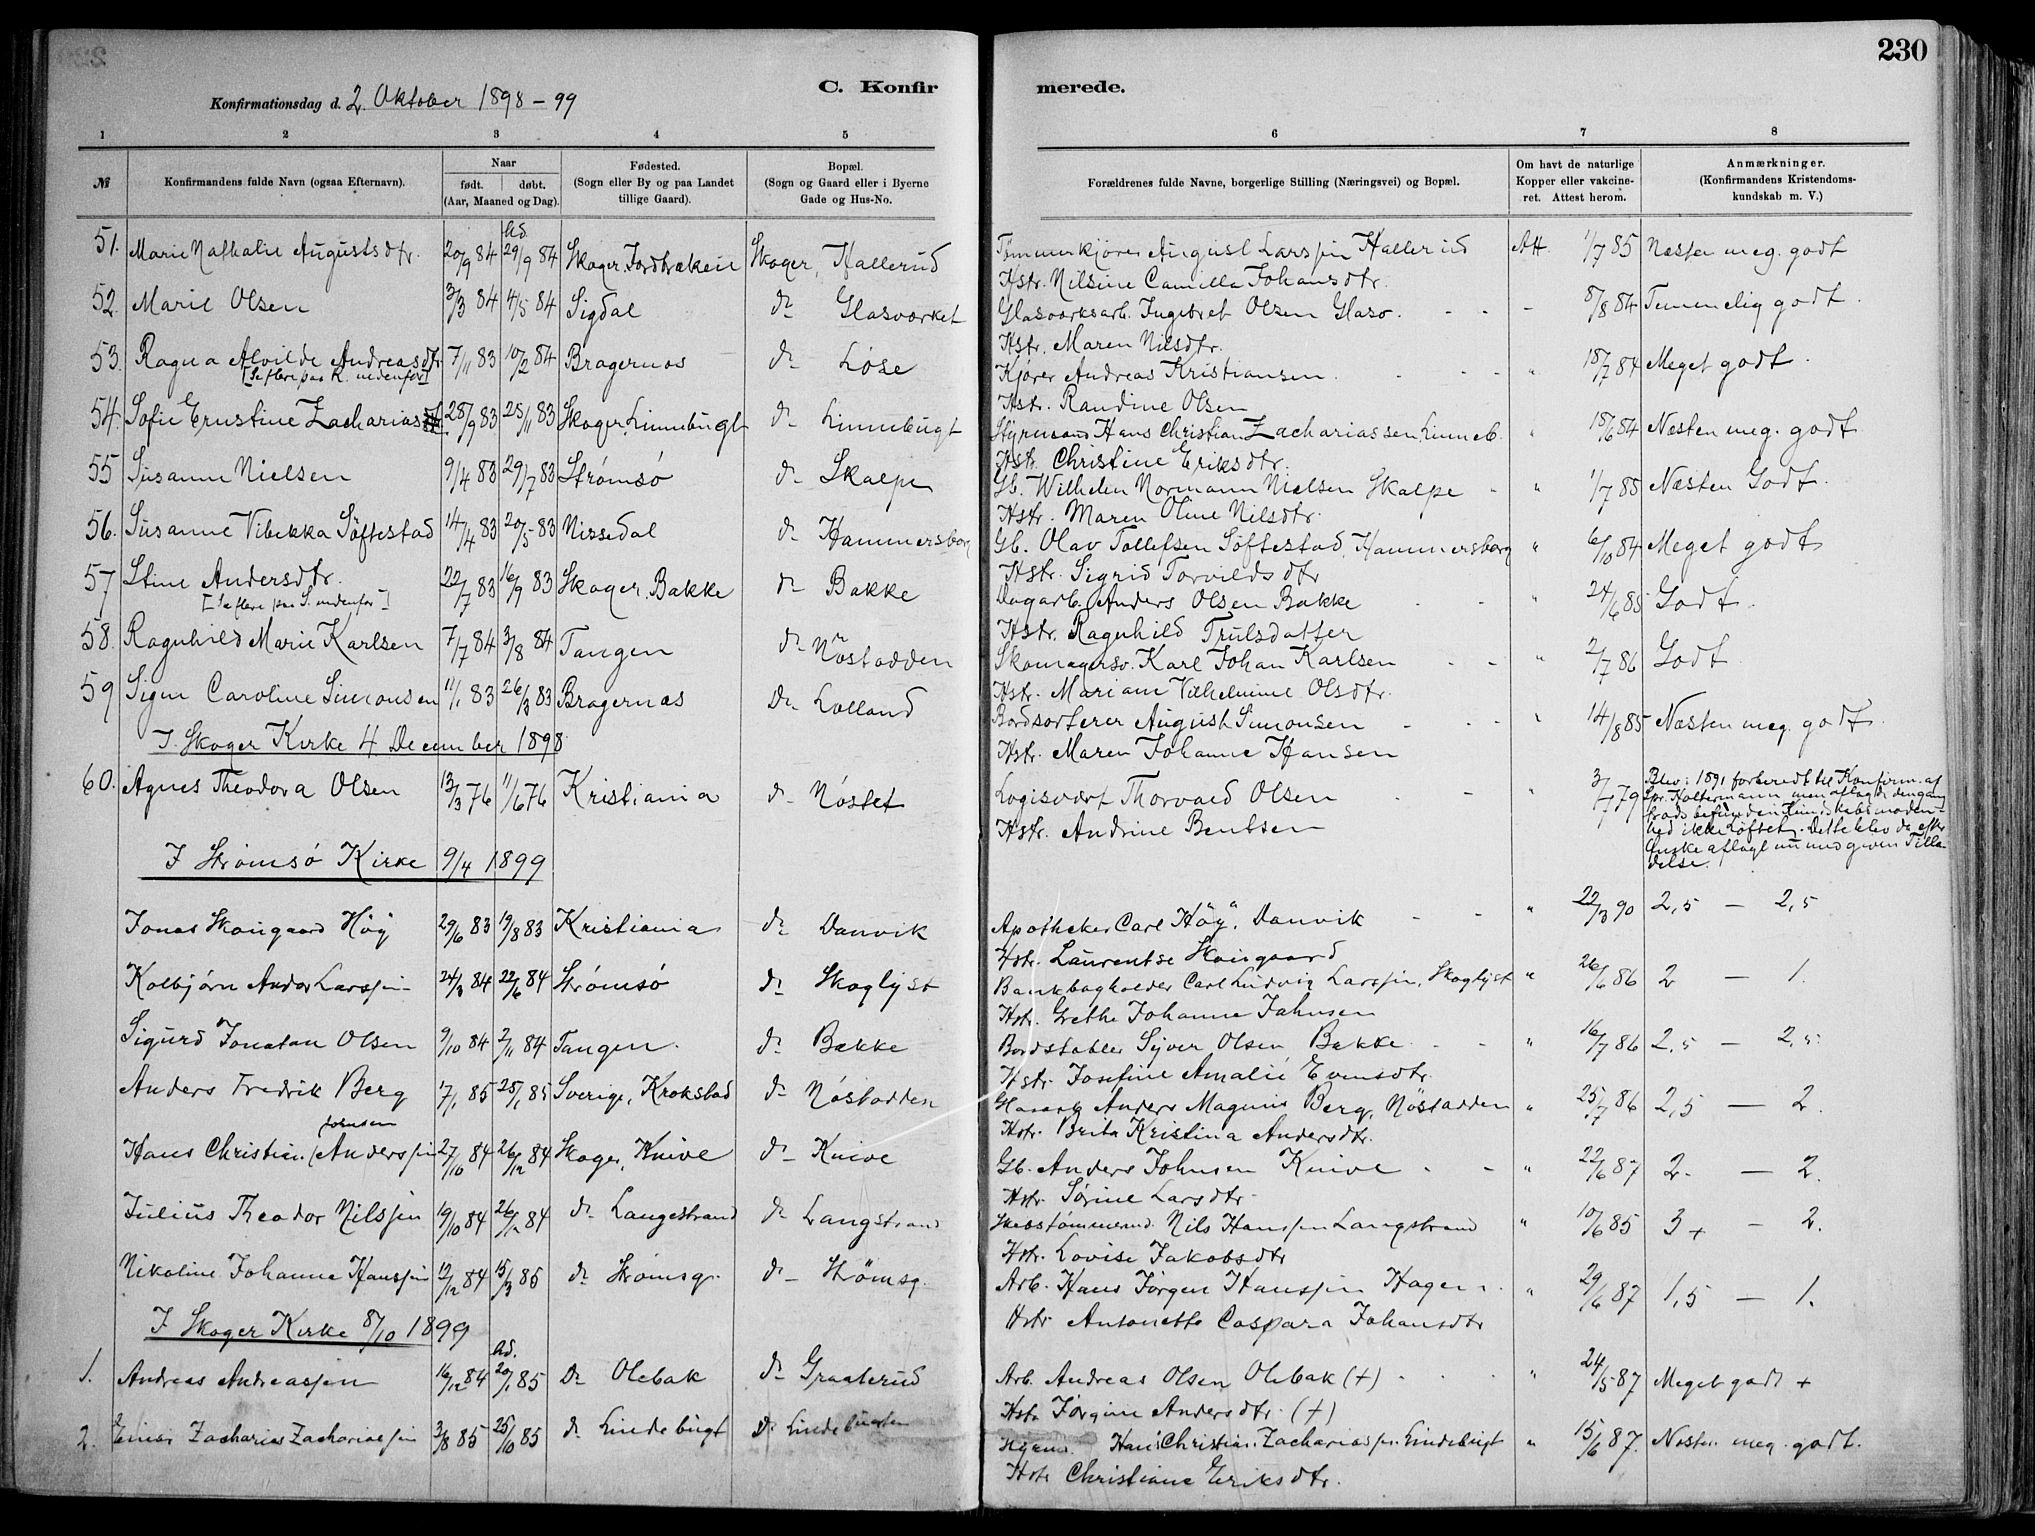 230
Konfirmationsdag d. 2. Oktober 1898 - 99
C. Konfir merede.
1 2 3 4 5 6 7 8
№ Konfirmandens fulde Navn (ogsaa Efternavn). Naar født. døbt. (Aar, Maaned og Dag). Fødested. (Sogn eller By og paa Landet tillige Gaard). Bopæl. (Sogn og Gaard eller i Byerne Gade og Hus-No. Forældrenes fulde Navne, borgerlige Stilling (Næringsvei) og Bopæl. Om havt de naturlige Kopper eller vakcineret. Attest herom. Anmærkninger. (Konfirmandens Kristendomskundskab m. V.)
51. Marie Nathalie Augustsdtr. 20/9 84 hd. 29/9 84 Skoger, Jordbrækken Skoger, Hallerud Tømmerkjører August Larssen Hallerud Att. 1/7 85 Næsten meg. godt
Hstr. Nilsine Camilla Johansdtr.
52. Marie Olsen 3/3 84 4/5 84 Sigdal do Glasværket Glasværksarb. Ingebret Olsen Glasv. - - - 8/8 84 Temmelig godt.
Hstr. Maren Nilsdtr.
53. Ragna Alvilde Andreasdtr. 7/11 83 10/2 84 Bragernæs do Løse Kjører Andreas Kristiansen. - - - " 18/7 84 Meget godt.
[Se flere paa R. nedenfor]
Hstr. Randine Olsen
54. Sofie Ernstine Zachariasdtr 28/9 83 25/11 83 Skoger, Linnebugt do Linnbugt Styrmand Hans Christian Zachariassen Linneb. " 18/6 84 Næsten meg. godt
Hstr. Christine Eriksdtr.
55 Susanne Nielsen 9/4 83 29/7 83 Strømsø do Skalpe Gb. Wilhelm Normann Nielsen Skalpe - " 1/7 85 Næsten Godt.
Hstr. Maren Oline Nilsdtr.
56. Susanne Vibekka Søftestad 14/4 83 20/5 83 Nissedal do Hammersborg Gb. Olav Tollefsen Søftestad, Hammersborg " 6/10 84 Meget godt
Hstr. Sigrid Torvildsdtr
57 Stine Andersdtr. 22/7 83 16/9 83 Skoger, Bakke do Bakke Dagarb. Anders Olsen Bakke - - " 24/6 85 Godt.
[Se flere paa S. nedenfor]
Hstr. Ragnhild Trulsdatter
58. Ragnhild Marie Karlsen 7/7 84 3/8 84 Tangen do Nøstodden Skomagersv. Karl Johan Karlsen - - " 2/7 86 Godt
Hstr. Mariane Vilhelmine Olsdtr.
59 Signe Caroline Simonsen 11/1 83 26/3 83 Bragernæs do Lolland Bordsorterer August Simonsen - - - " 14/8 85 Næsten meg. godt.
Hstr. Maren Johanne Hansen
I Skoger Kirke 4. December 1898
60. Agnes Theodora Olsen 13/3 76 11/6 76 Kristiania do Nøstet Logisvært Thorvald Olsen - - " 3/7 79 Blev i 1891 forberedt til Konfirm. af
Spr. Holtermann men aflagde dengang
trods befunden Kundskabsmoden-
hed ikke Løftet. Dette blev da efter
Ønske aflagt nu med given Tilla-
delse.
Hstr. Andrine Bentsen
I Strømsø Kirke 9/4 1899
Jonas Skougaard Höÿ 29/6 83 19/8 83 Kristiania do Danvik Apotheker Carl Höÿ, Danvik - - " 22/3 90 2,5 — 2,5
Hstr. Laurentse Skougaard
Kolbjørn Andor Larssen 24/3 84 22/6 84 Strømsø do Skoglyst Bankbogholder Carl Ludvig Larssen, Skoglyst " 26/6 86 2 — 1.
Hstr. Grethe Johanne Jahnsen
Sigurd Jonatan Olsen 9/10 84 2/11 84 Tangen. do Bakke Bordstabler Syver Olsen Bakke - - " 16/7 86 2,5 — 2,5
Hstr. Josefine Amalie Evensdtr.
Anders Fredrik Berg 17/1 85 25/1 85 Sverige, Krokstad do Nøstodden Anders Magnus Berg, Nøstodden " 25/7 86 2,5 — 2.
Hstr. Brita Kristina Andersdtr.
Johnsen
Hans Christian (Anderssen 27/10 84 26/12 84 Skoger, Knive do Knive Gb. Anders Johnsen Knive - - " 22/6 87 2. — 2.
Hstr. Sørine Larsdtr.
Julius Theodor Nilssen 19/10 84 26/12 84 do Langestrand do Langstrand Skibstømmerm. Nils Hanssen Langstrand " 10/6 85 3+ - 2.
Hstr. Lovise Jakobsdtr
Nikoline Johanne Hanssen 12/12 84 15/3 85 do Strømsg. do Strømsg. Arb. Hans Jørgen Hanssen Hagen. " 29/6 87 1,5 — 1.
Hstr Antonette Caspara Johansdtr
I Skoger Kirke 8/10 1899
1. Andreas Andreassen 16/12 84 hd. 20/1 85 do Olebak do Graaterud Arb. Andreas Olsen Olebak (+) - - - " 24/5 87 Meget godt +
Hstr Jørgine Andersdtr. (+)
2. Einar Zacharias Zachariassen 3/8 85 25/10 85 do Lindebugt do Hans Christian Zachariassen Lindebugt " 15/6 87. Næsten meg. godt.
Hstr Christiane Eriksdtr.